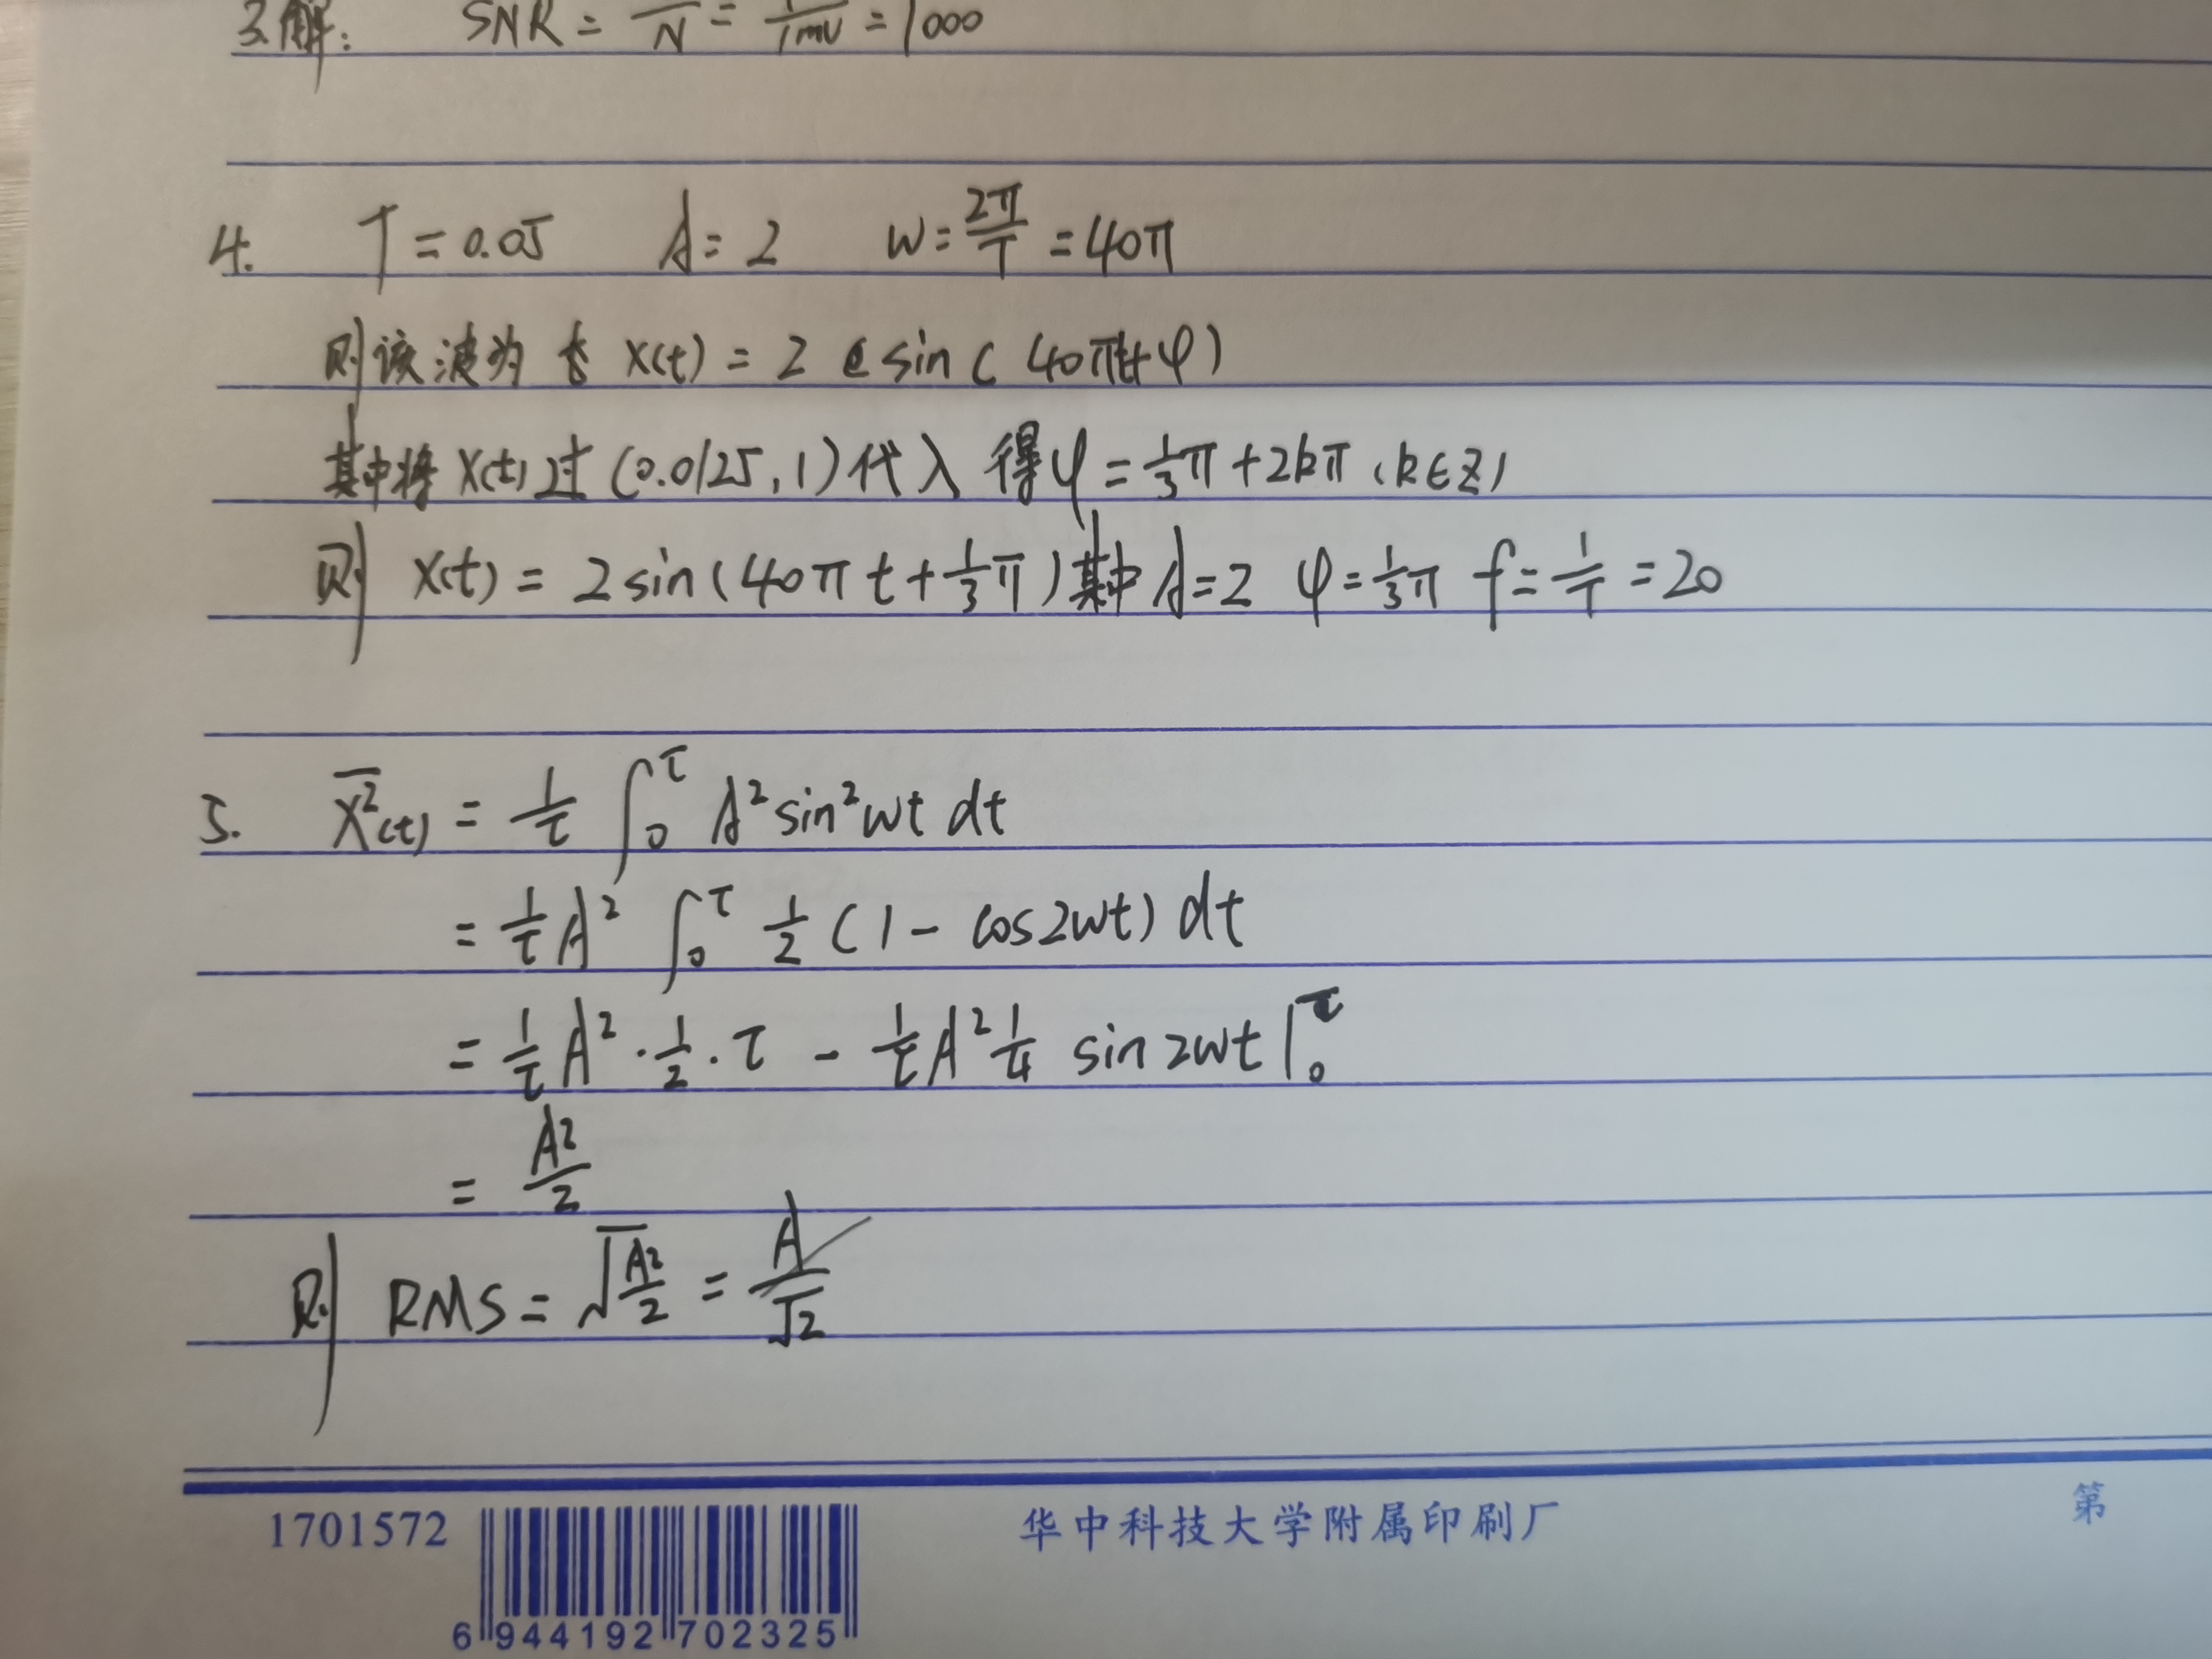 3.解: SNR = /N = 1/1mV = 1000
4. T = 0.05 A = 2 w = 2π/T = 40π
则该波为 x(t) = 2 sin ( 40πt+φ)
其中将 x(t) 过 (0.0125, 1) 代入 得 φ = 1/3 π + 2kπ (k∈Z)
则 x(t) = 2 sin (40π t + 1/3 π) 其中 A = 2 φ = 1/3 π f = 1/T = 20
5. x̅²(t) = 1/τ ∫₀^τ A² sin² wt dt
= 1/τ A² ∫₀^τ 1/2 (1 - cos2wt) dt
= 1/τ A² · 1/2 · τ - 1/τ A² 1/4 sin 2wt |₀^τ
= A²/2
则 RMS = √(A²/2) = A/√2
1701572 华中科技大学附属印刷厂 第
6 944192 702325